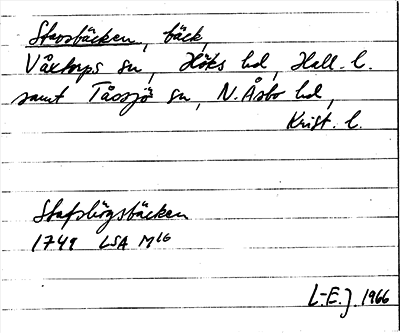 Stavsbäcken, bäck,
Våxtorps sn, Höks hd, Hall. l.
samt Tåssjö sn, N. Åsbo hd,
Krist. l.
Stafsbögsbäcken
1749 LSA M16
L-E.J. 1966